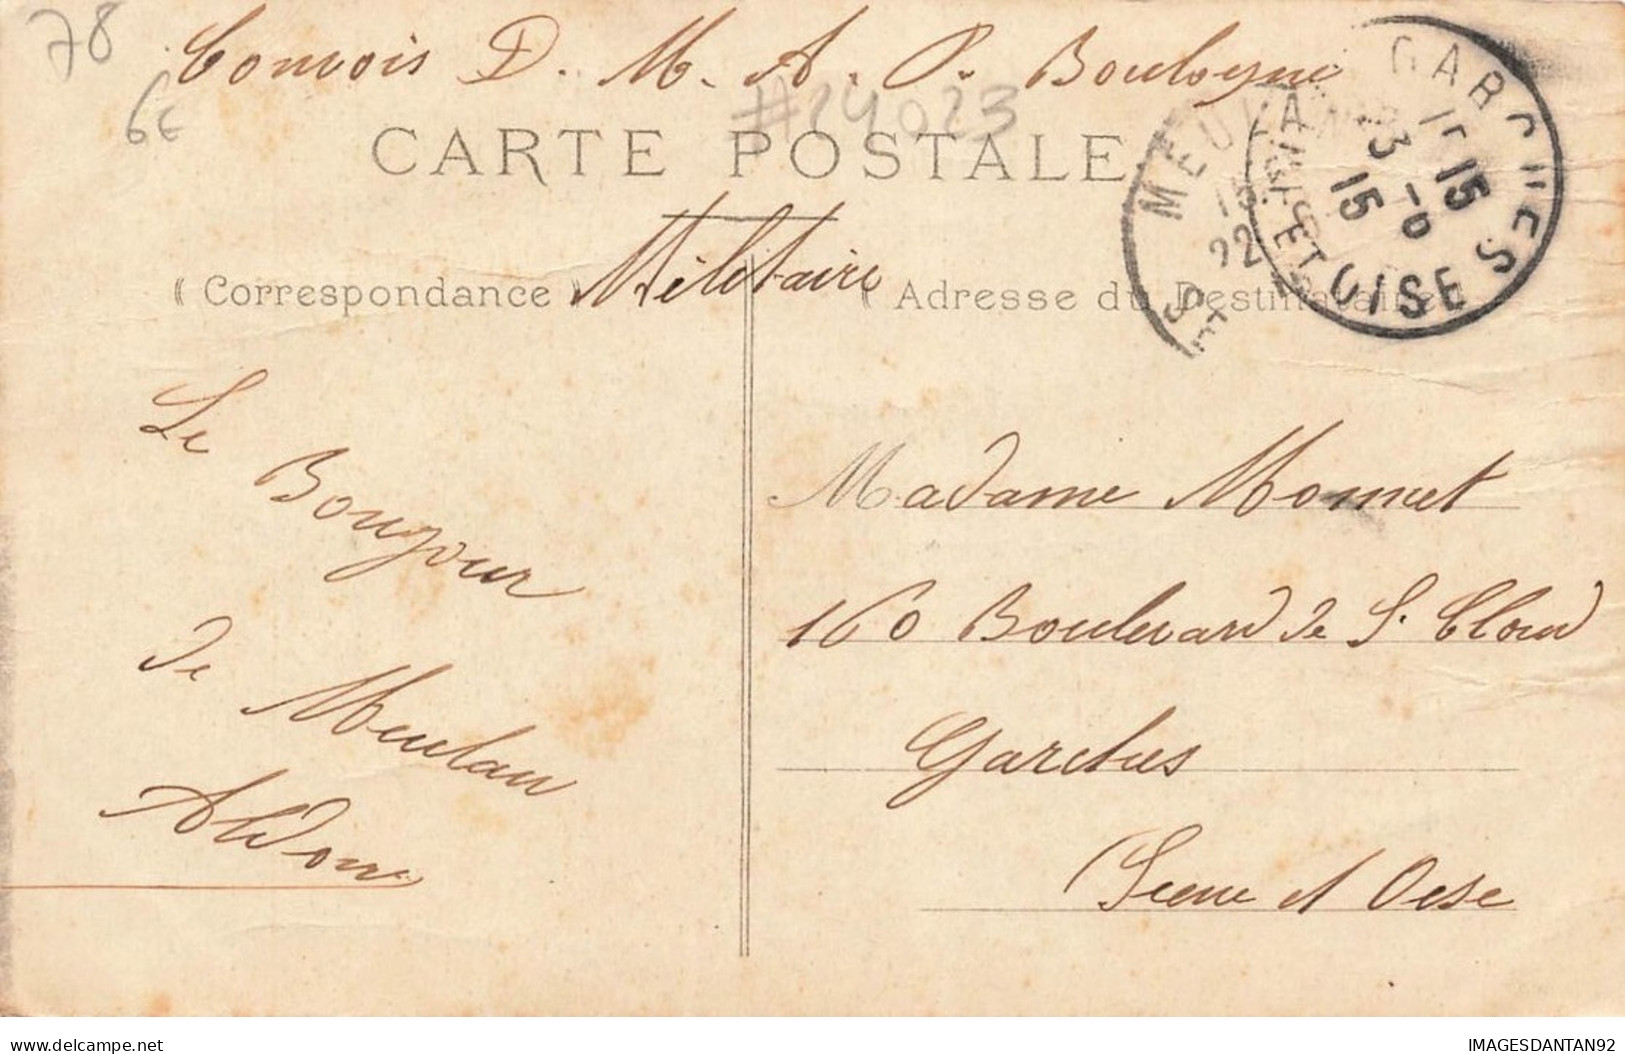 78
6€
Convois D. M. A. P. Boulogne
#24023
CARTE POSTALE
Militaire
Correspondance
Adresse du Destinataire
GARCHES
SEINE ET OISE
15 15
23 -6
15
MEULAN
22
SE
Le Bonjour
de Meulan
Madame Monnet
160 Boulevard de St Cloud
Garches
Seine et Oise
IMAGESDANTAN92
www.delcampe.net